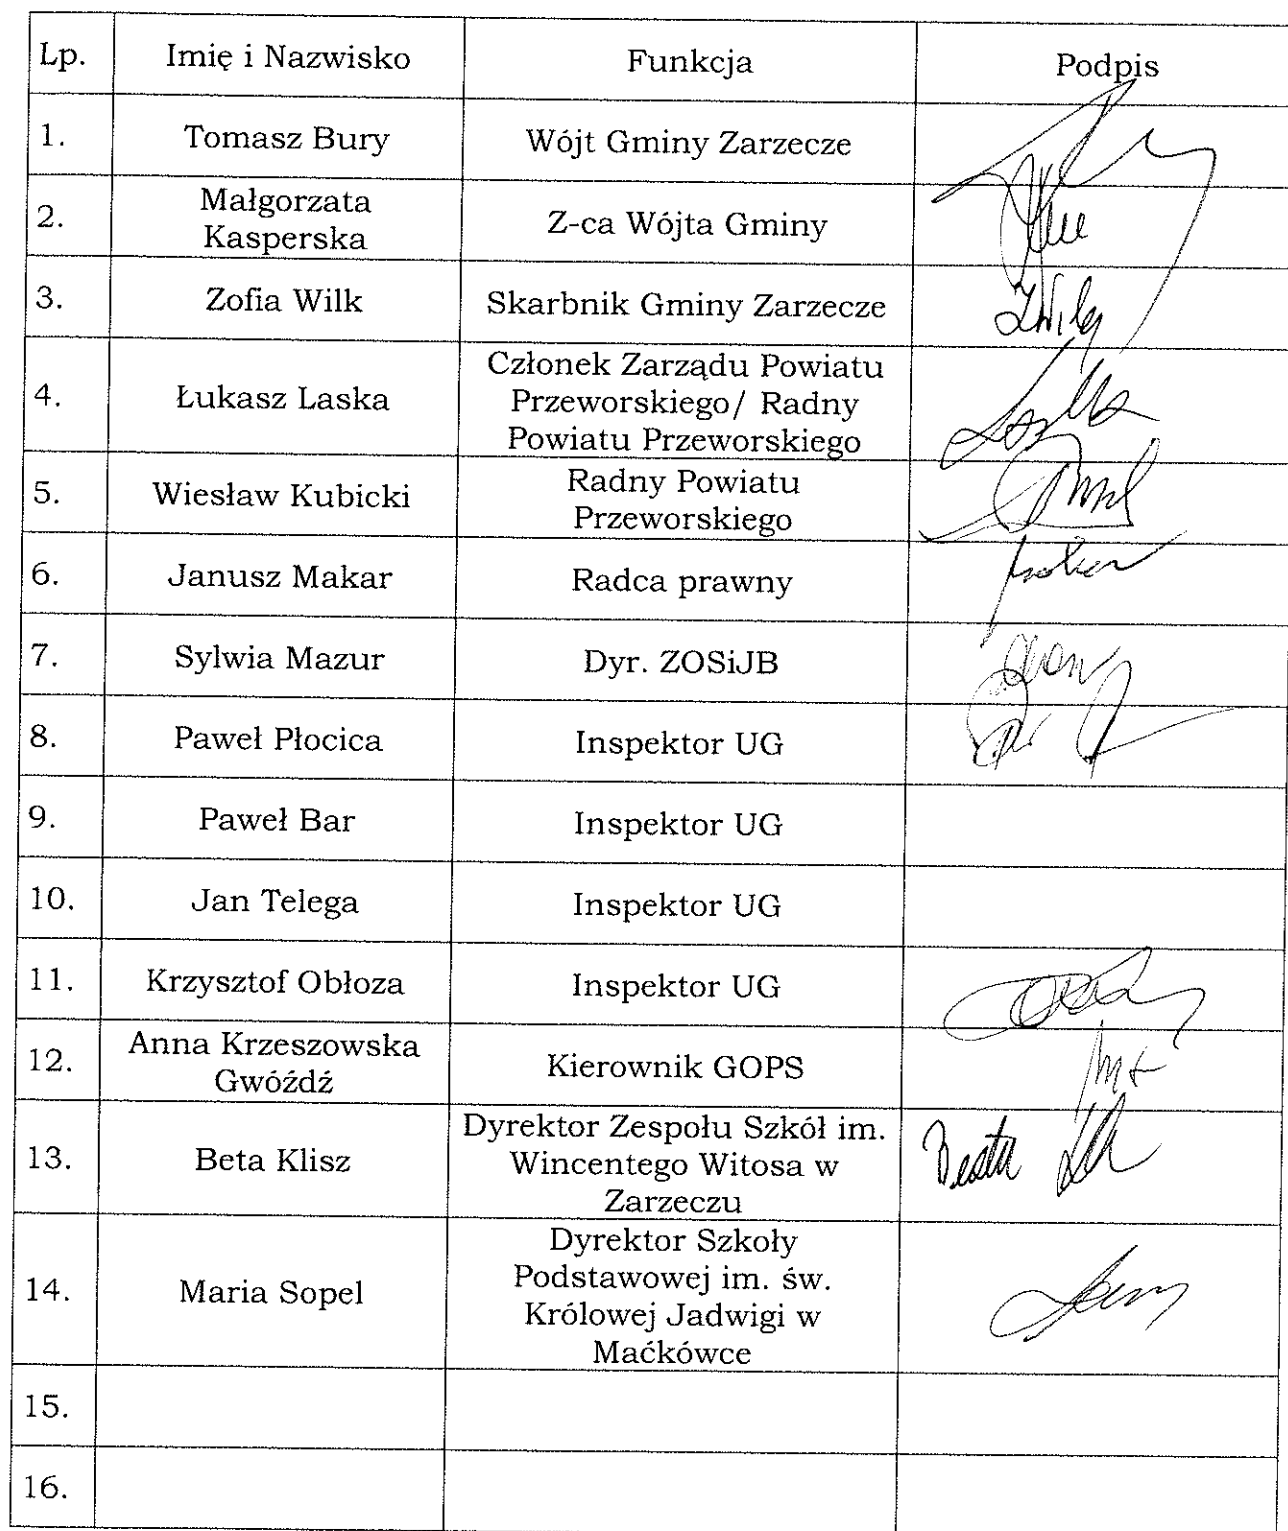 Lp. Imię i Nazwisko Funkcja Podpis
1. Tomasz Bury Wójt Gminy Zarzecze
2. Małgorzata
Kasperska Z-ca Wójta Gminy
3. Zofia Wilk Skarbnik Gminy Zarzecze
4. Łukasz Laska Członek Zarządu Powiatu
Przeworskiego/ Radny
Powiatu Przeworskiego
5. Wiesław Kubicki Radny Powiatu
Przeworskiego
6. Janusz Makar Radca prawny
7. Sylwia Mazur Dyr. ZOSiJB
8. Paweł Płocica Inspektor UG
9. Paweł Bar Inspektor UG
10. Jan Telega Inspektor UG
11. Krzysztof Obłoza Inspektor UG
12. Anna Krzeszowska
Gwóźdź Kierownik GOPS
13. Beta Klisz Dyrektor Zespołu Szkół im.
Wincentego Witosa w
Zarzeczu
Beata
14. Maria Sopel Dyrektor Szkoły
Podstawowej im. św.
Królowej Jadwigi w
Maćkówce
15.
16.